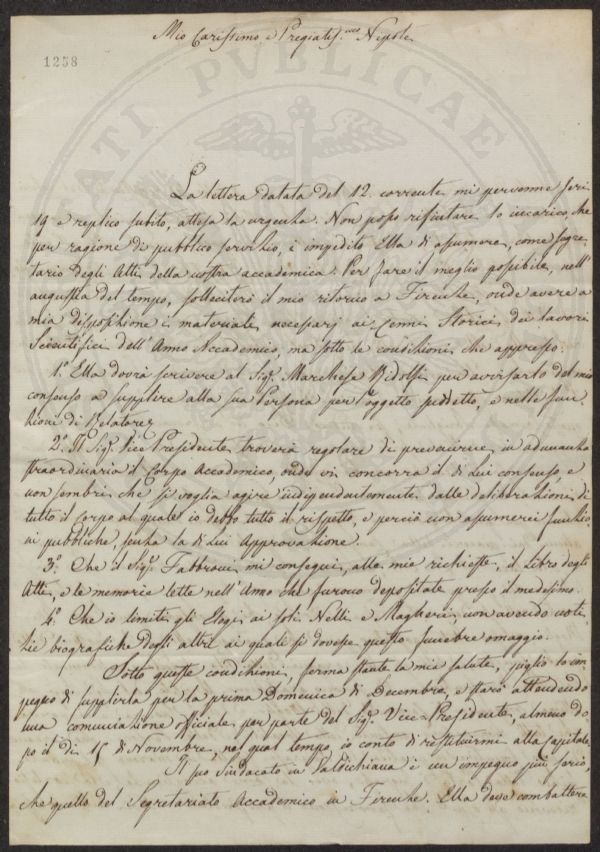 Mio Carissimo e Pregiatis.mo Nipote
1258
TATI PVBLICAE
La lettera datata del 12. corrente mi pervenne jeri
19 e replico subito, attesa la urgenza. Non posso rifiutare lo incarico, che
per ragione di pubblico servizio, è impedito Ella di assumere, come segre=
tario degli Atti della nostra accademica. Per fare il meglio possibile, nell'
angustia del tempo, solleciterò il mio ritorno a Firenze, onde avere a
mia disposizione i materiali necessarj ai Cenni Storici dei lavori
Scientifici dell'Anno Accademico, ma sotto le condizioni che appresso.
1.o Ella dovrà scrivere al Sig.r Marchese Ridolfi per avvisarlo del mio
consenso a supplire alla sua Persona per l'oggetto suddetto, e nelle fun=
zioni di Relatore
2.o Il Sig.r Vice Presidente troverà regolare di prevenirne, in adunanza
straordinaria il Corpo Accademico, onde vi concorra il di Lui consenso e
non sembri che si voglia agire indipendentemente dalle deliberazioni di
tutto il Corpo al quale io debbo tutto il rispetto, e perciò non assumerei funzio=
ni pubbliche, senza la di Lui Approvazione.
3.o Che il Sig.r Fabbroni mi consegni, alle mie richieste, il Libro degli
Atti, e le memorie lette nell'Anno che furono depositate presso il medesimo.
4.o Che io limiti gli Elogj ai soli Nelli e Magheri, non avendo noti=
zie biografiche degli altri ai quali si dovesse questo funebre omaggio.
Sotto queste condizioni, ferma stante la mia salute, piglio lo im=
pegno di supplirla per la prima Domenica di Decembre, e starò attendendo
una comunciazione officiale per parte del Sig.r Vice-Presidente, almeno do=
po il dì 15 di Novembre, nel qual tempo, io conto di restituirmi alla Capitale
Il suo Sindacato in Valdichiana è un impegno più serio,
che quello del Segretariato Accademico in Firenze. Ella deve combattere